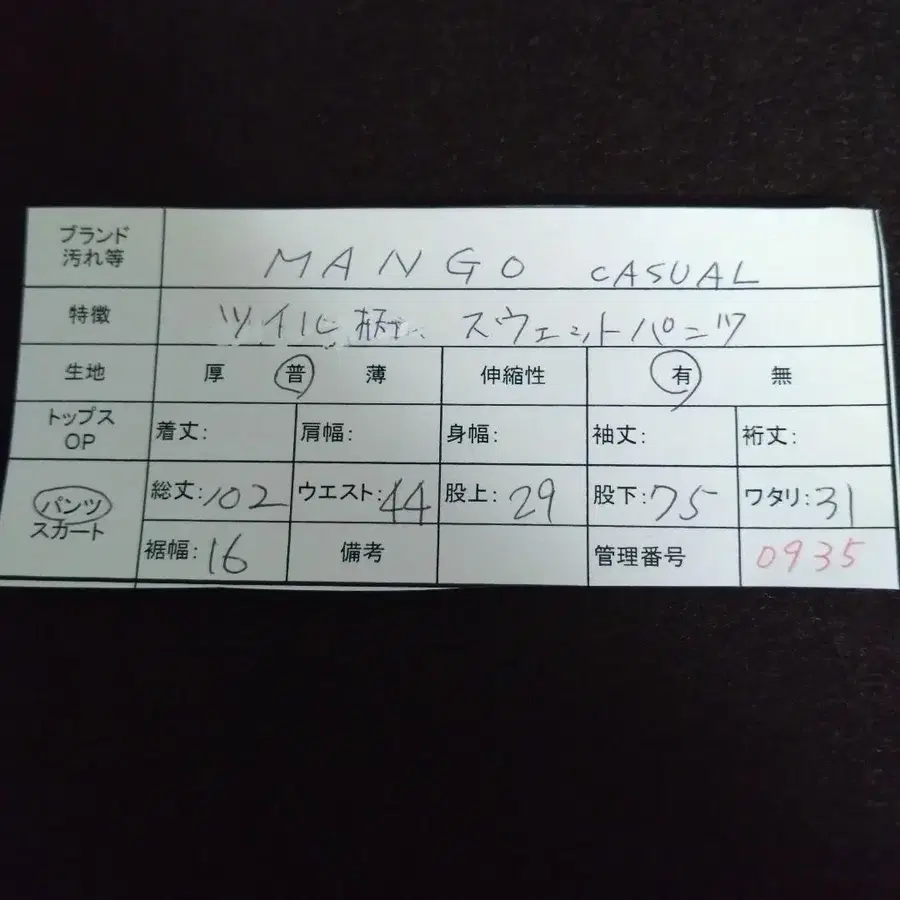 ブランド
汚れ等
MANGO CASUAL
特徴 ツイル柄 スウェットパンツ
生地 厚 普 薄 伸縮性 有 無
トップス
OP
着丈: 肩幅: 身幅: 袖丈: 裄丈:
パンツ
スカート
総丈:102 ウエスト:44 股上:29 股下:75 ワタリ:31
裾幅:16 備考 管理番号 0935